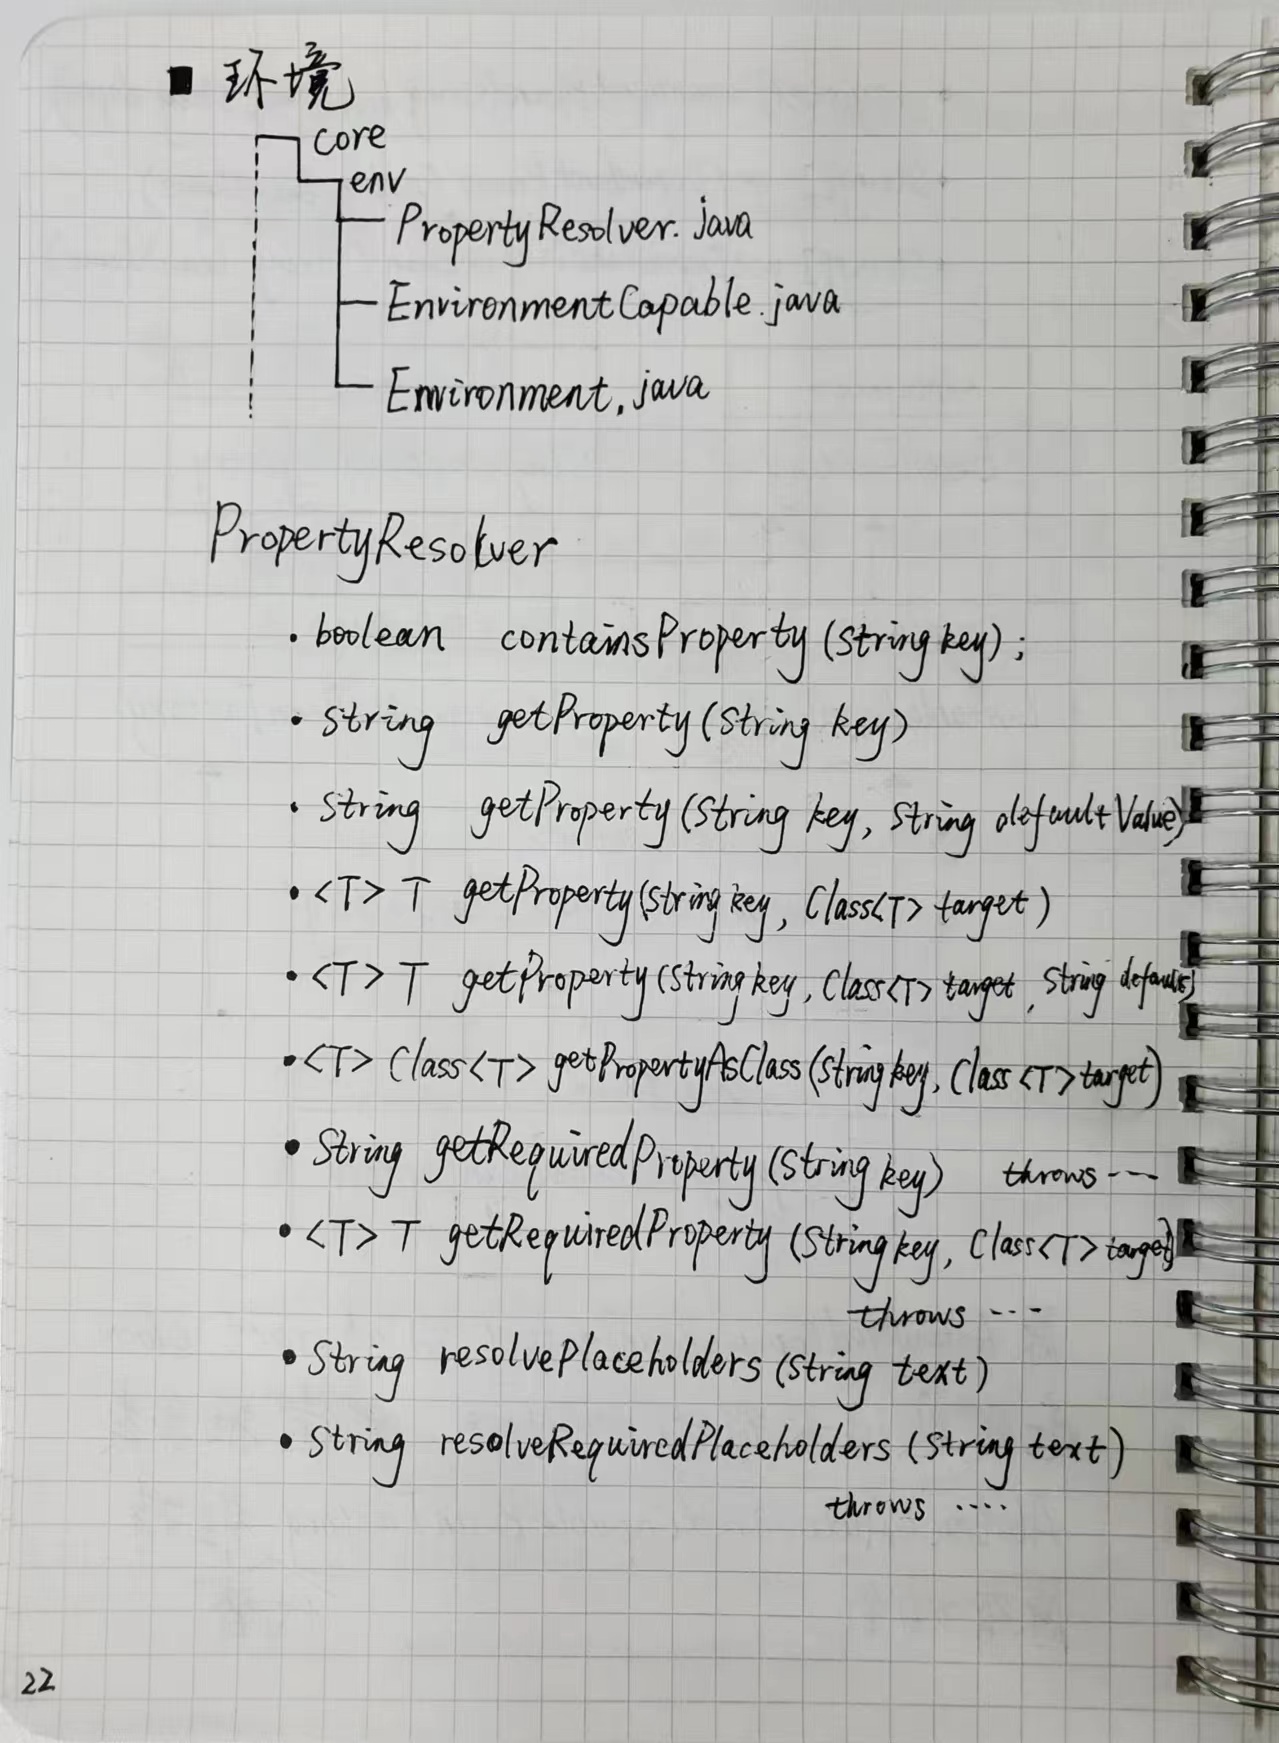 ■ 环境
core
env
PropertyResolver.java
EnvironmentCapable.java
Environment.java
PropertyResolver
· boolean containsProperty(String key);
· String getProperty(String key)
· String getProperty(String key, String defaultValue)
· <T> T getProperty(String key, Class<T> target)
· <T> T getProperty(String key, Class<T> target, String default)
· <T> Class<T> getPropertyAsClass(String key, Class<T> target)
· String getRequiredProperty(String key) throws ---
· <T> T getRequiredProperty(String key, Class<T> target)
throws ---
· String resolvePlaceholders(String text)
· String resolveRequiredPlaceholders(String text)
throws ....
22